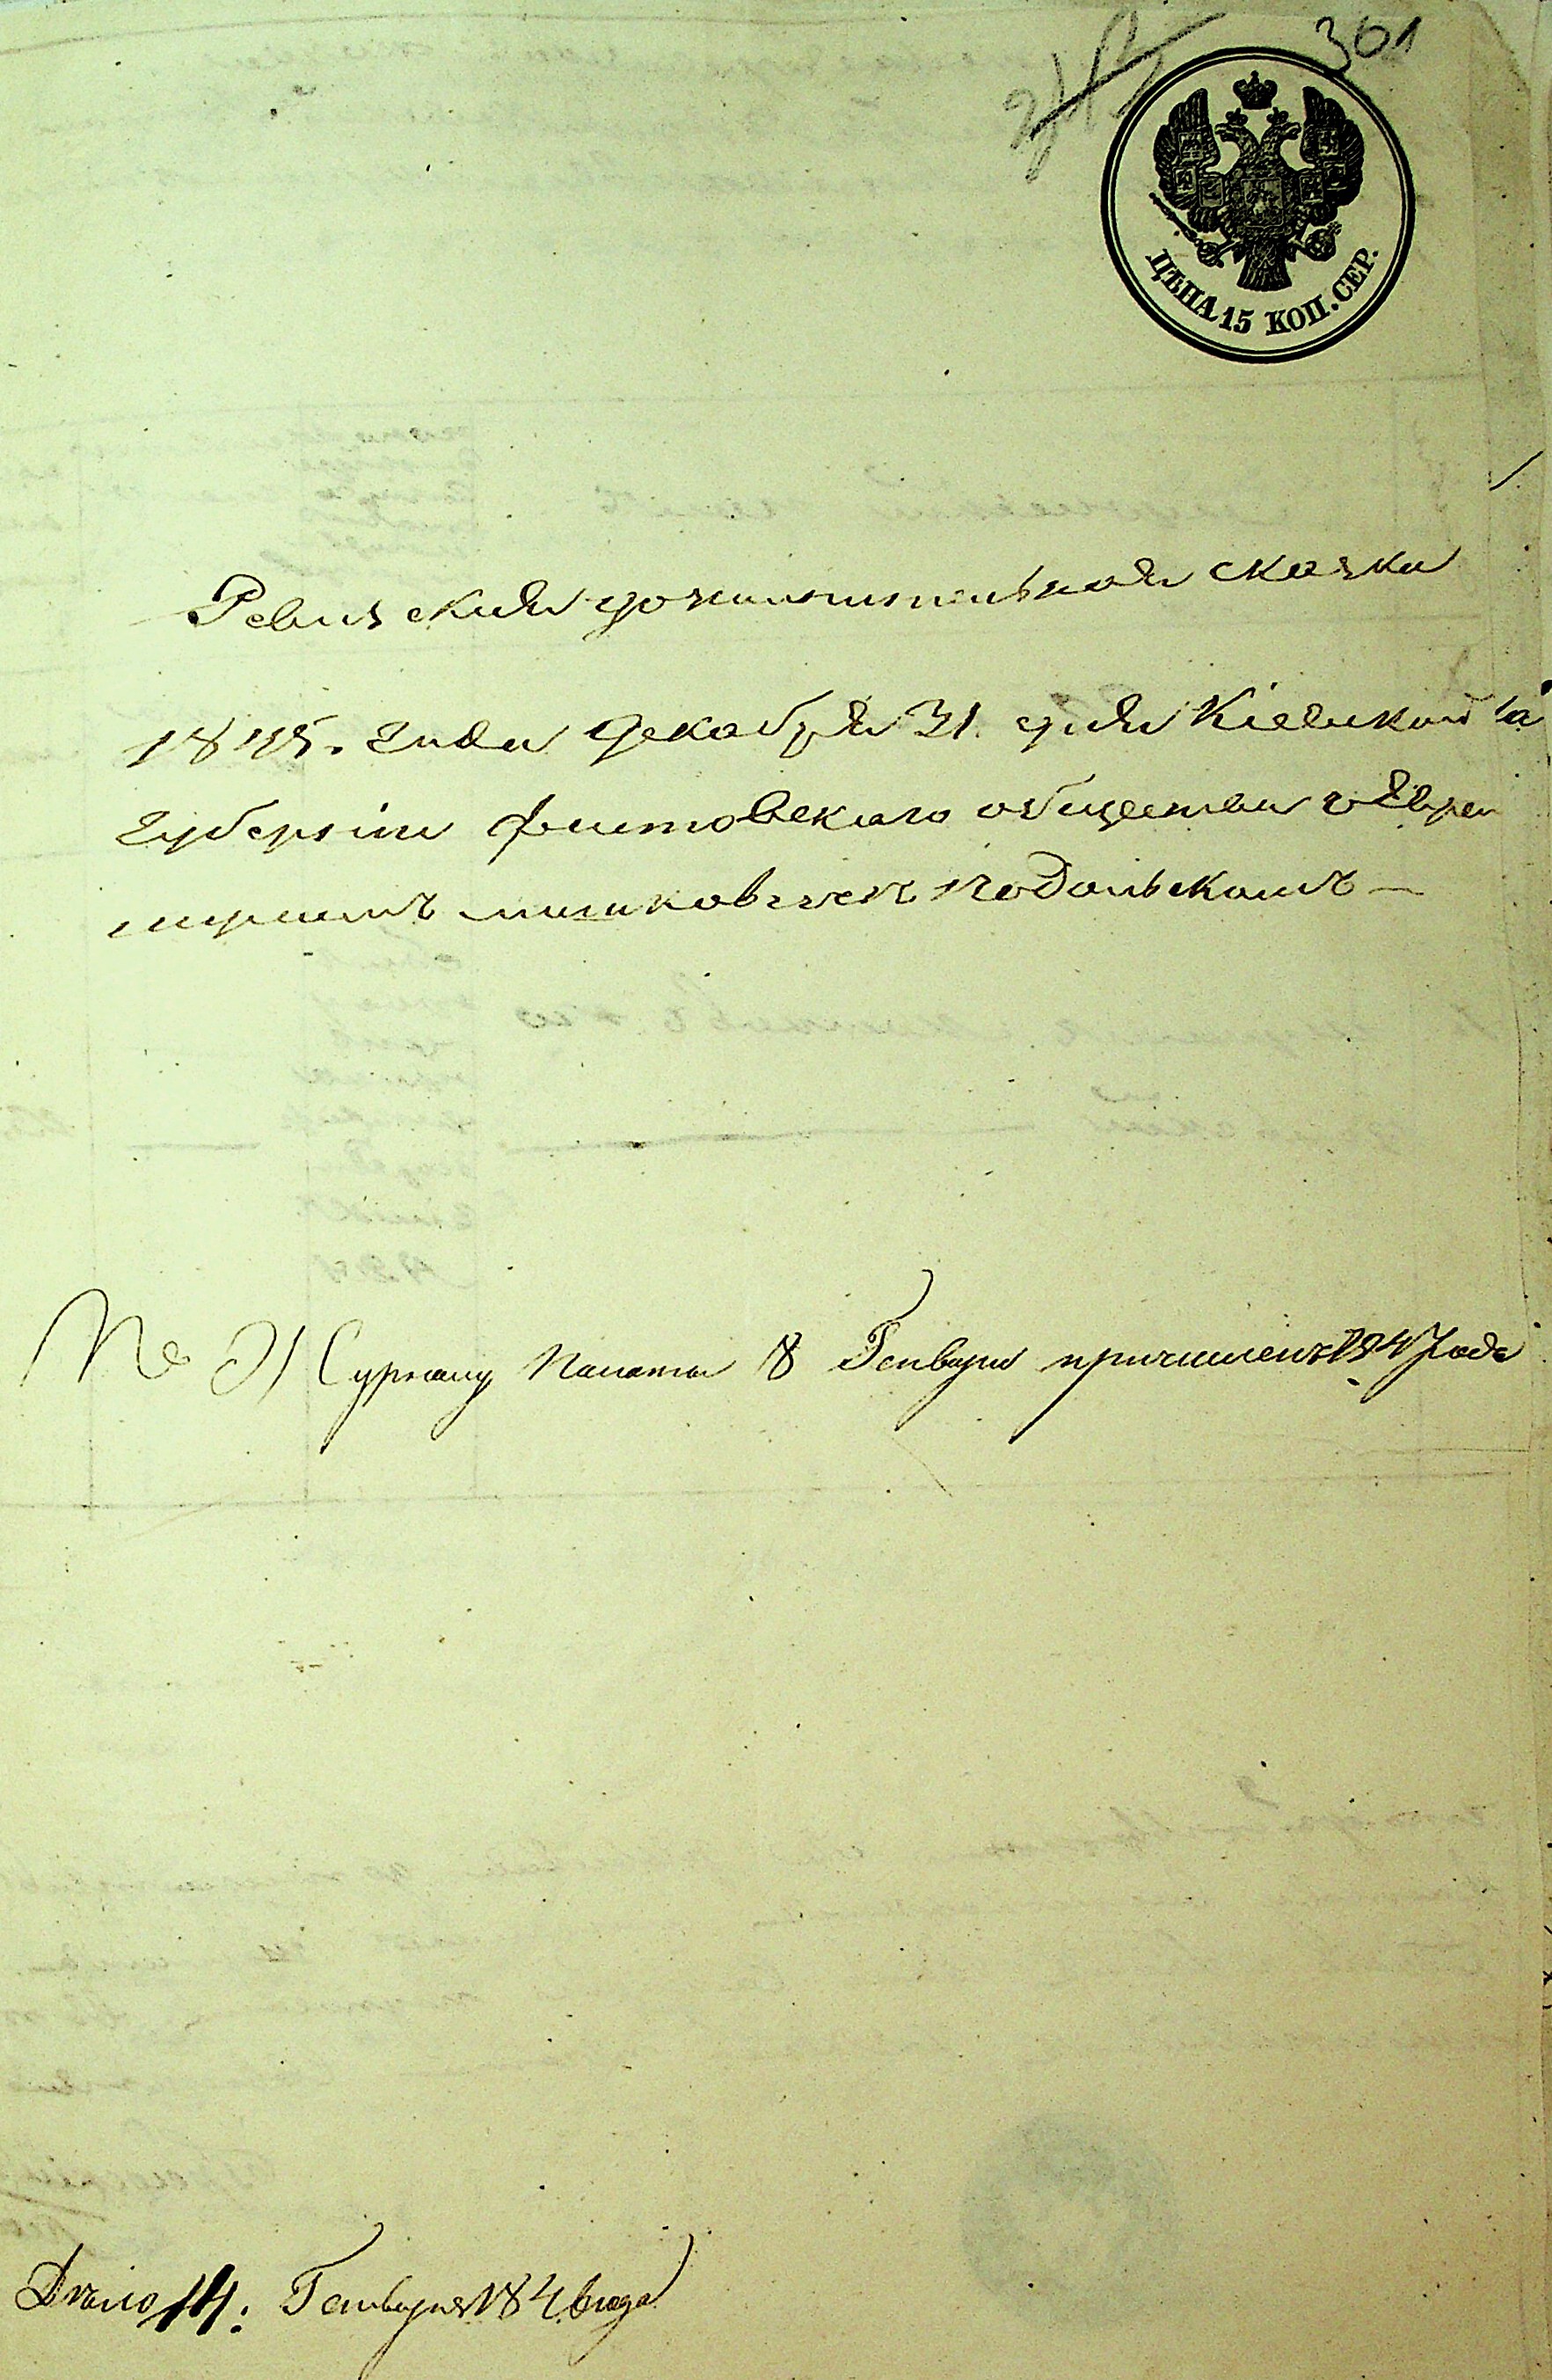 301
ЦѢНА 15 КОП. СЕР.
Ревизская дополнительная сказка
1845. года Декабря 31. дня Кіевской
губерніи фастовскаго общества о Евреи
подольскомъ —
По Журналу Палаты 8 Генваря причисленъ 1847 года
Дѣло 14: Генваря 1846 года